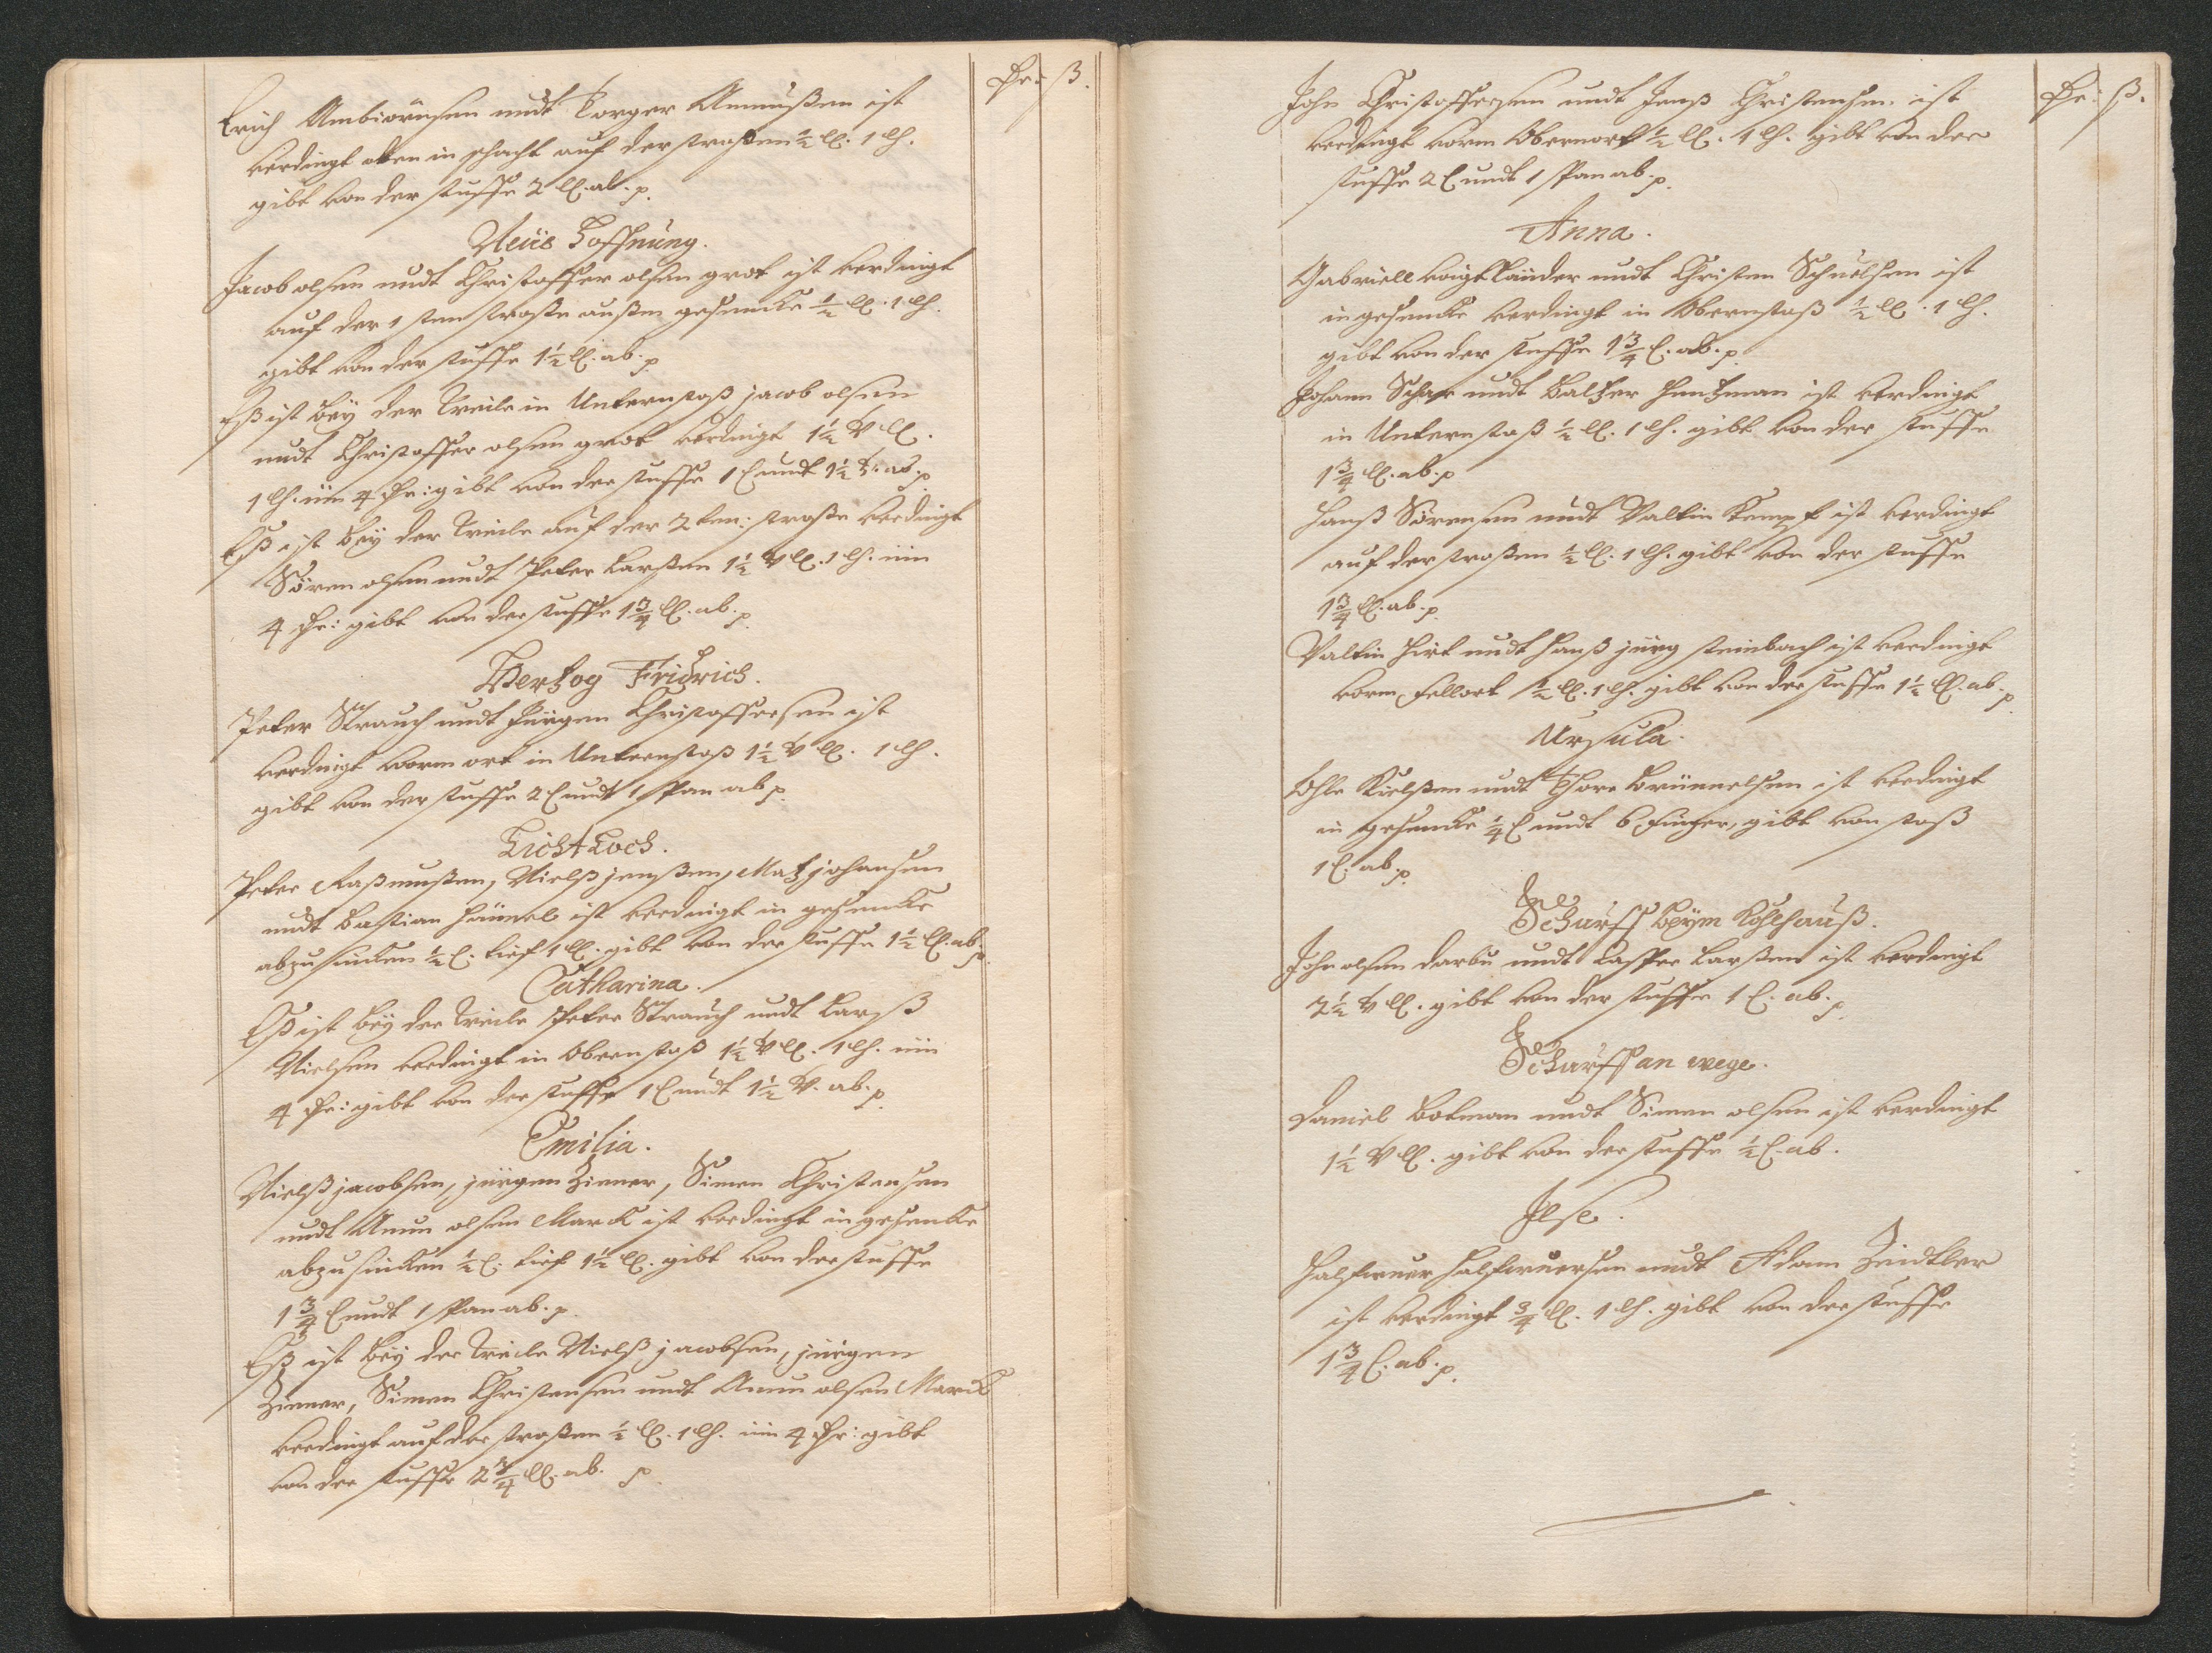 Pr: ß.
Erich Ambiörnsen undt Torger Amunßen ist
verdingt oben in schacht auf der stroßen ½ ll. 1 lh.
gibt von der stuffe 2 ll. ab. p.
Neue Hoffnung.
Jacob olsen undt Christoffer olsen grot ist verdingt
auf der 1 sten stroße außen gesencke ½ ll. 1 lh.
gibt von der stuffe 1½ ll. ab. p
Eß ist bey der Treile in Unternstoß jacob olsen
undt Christoffer olsen grot verdingt 1½ ll.
1 lh. üm 4 Pr: gibt von der stuffe 1 l undt 1½ ab. p
Eß ist bey der Treile auf der 2 ten: stroße verdingt
Sören olsen undt Peter Larßen 1½ ll. 1 lh. üm
4 Pr: gibt von der stuffe 1¾ ll. ab. p.
Hertzog Fridrich.
Peter Strauch undt Jürgen Christoffersen ist
verdingt vorm ort in Unternstoß 1½ ll. 1 lh.
gibt von der stuffe 2 l undt 1 span ab p.
LichtLoch.
Peter Raßmußen, Nielß jenßen, Matz johansen
undt Bastian Hämel ist verdingt in gesencke
abzusincken ½ l. tief 1 ll. gibt von der stuffe 1½ ll. ab. p.
Catharina.
Eß ist bey der Treile Peter Strauch undt Larß
Nielsen verdingt in Obernstoß 1½ ll. 1 lh. üm
4 Pr: gibt von der stuffe 1 l undt 1½ ab. p
Emilia.
Nielß jacobsen, jürgen Ziener, Simen Christensen
undt Amun olsen Marck ist verdingt in gesencke
abzusincken ½ l. tief 1½ ll. gibt von der stuffe
1¾ l undt 1 span ab. p.
Eß ist bey der Treile Nielß jacobsen, jürgen
Ziener, Simen Christensen undt Amun olsen Marck
verdingt auf der stroßen ½ ll. 1 lh. üm 4 Pr: gibt
von der stuffe 2¾ ll. ab. p.
Pr: ß.
John Christoffersen undt Jenß Christensen ist
verdingt vorm Obernort ½ ll. 1 lh. gibt von der
stuffe 2 l undt 1 span ab. p.
Anna.
Gabriell voigtländer undt Christen Schuelsen ist
in gesencke verdingt in Obernstoß ½ ll. 1 lh.
gibt von der stuffe 1¾ l. ab. p
Johann Schar undt Baltzer Huntzman ist verdingt
in Unternstoß ½ ll. 1 lh. gibt von der stuffe
1¾ ll. ab. p
Hanß Sörensen undt Valtin Kempf ist verdingt
auf der stroßen ½ ll. 1 lh. gibt von der stuffe
1¾ ll. ab. p.
Valtin Hirt undt Hanß jürg steinbach ist verdingt
vorm Fellort ½ ll. 1 lh. gibt von der stuffe 1½ ll. ab. p.
Ursula.
Ohle Kielßen undt Thore Brünnelsen ist verdingt
in gesencke ¼ l undt 6 finger, gibt von stoß
1 l. ab p.
Schurff beym Kohlhauß.
John olsen darbu undt Casper Larßen ist verdingt
2½ ll. gibt von der stuffe 1 l. ab. p.
Schurff an wege.
Daniel Botman undt Simen olsen ist verdingt
1½ ll. gibt von der stuffe ½ l. ab.
Ilse.
Halfwuer Halfwuersen undt Adam Zindtler
ist verdingt ¾ ll. 1 lh. gibt von der stuffe
1¾ l. ab. p.